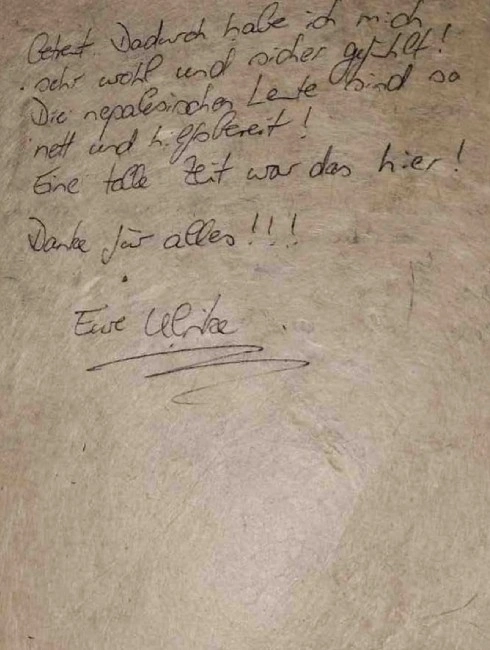 Dadurch habe ich mich
sehr wohl und sicher gefühlt!
Die nepalesischen Leute sind so
nett und hilfsbereit!
Eine tolle Zeit war das hier!
Danke für alles!!!
Eure Ulrike